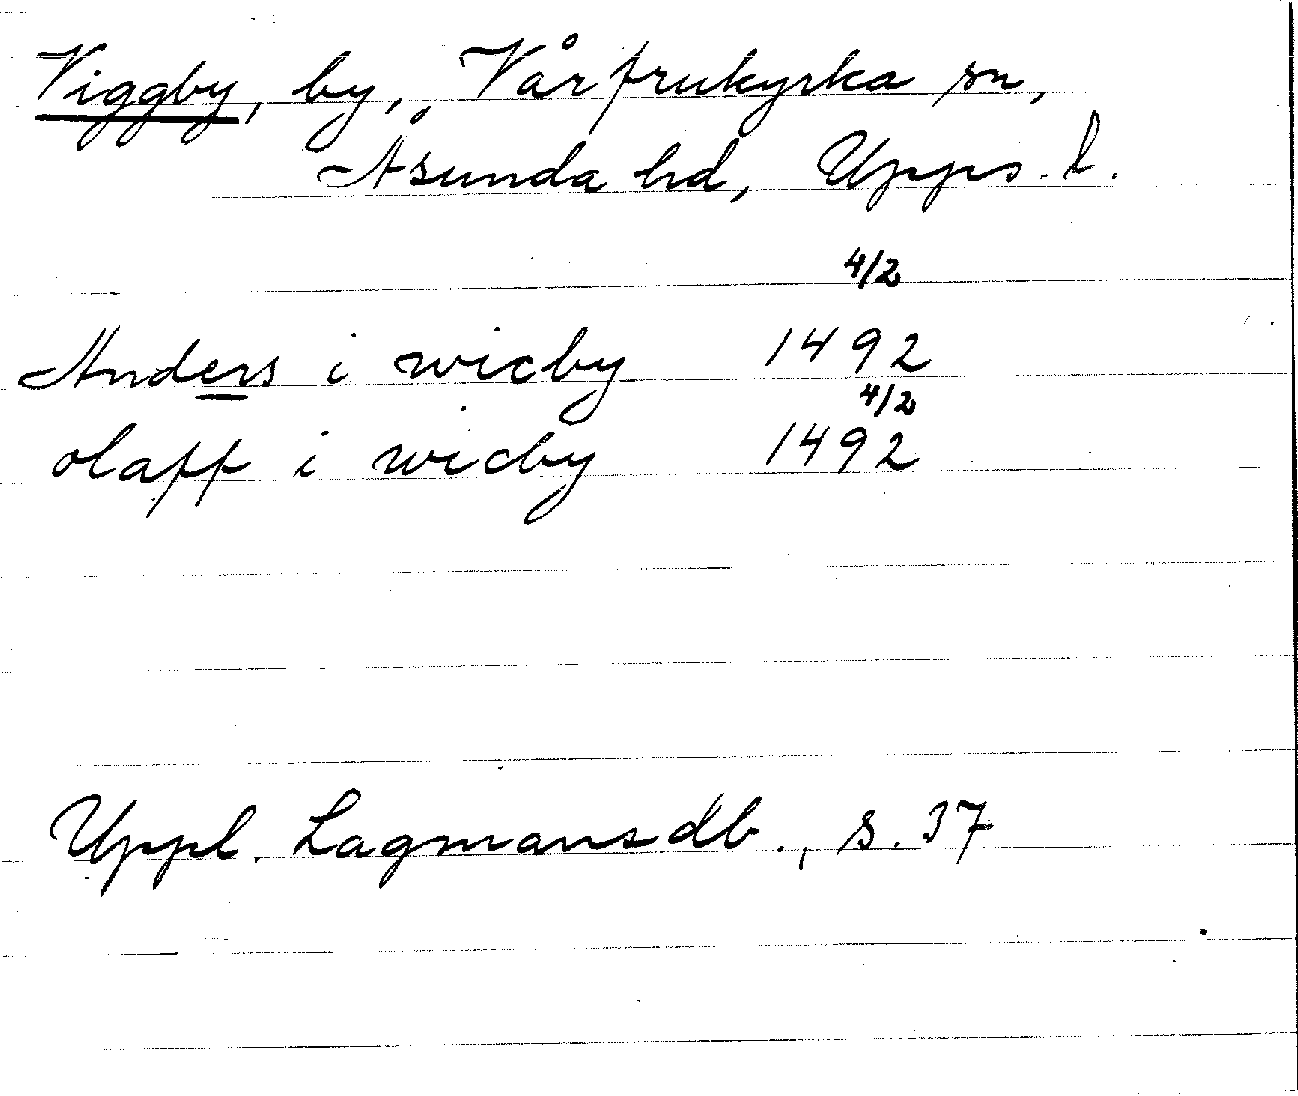 Viggby, by, Vårfrukyrka sn,
Åsunda hd, Upps. l.
4/2
Anders i wicby 1492
4/2
olaff i wicby 1492
Uppl. Lagmansdb., s. 37